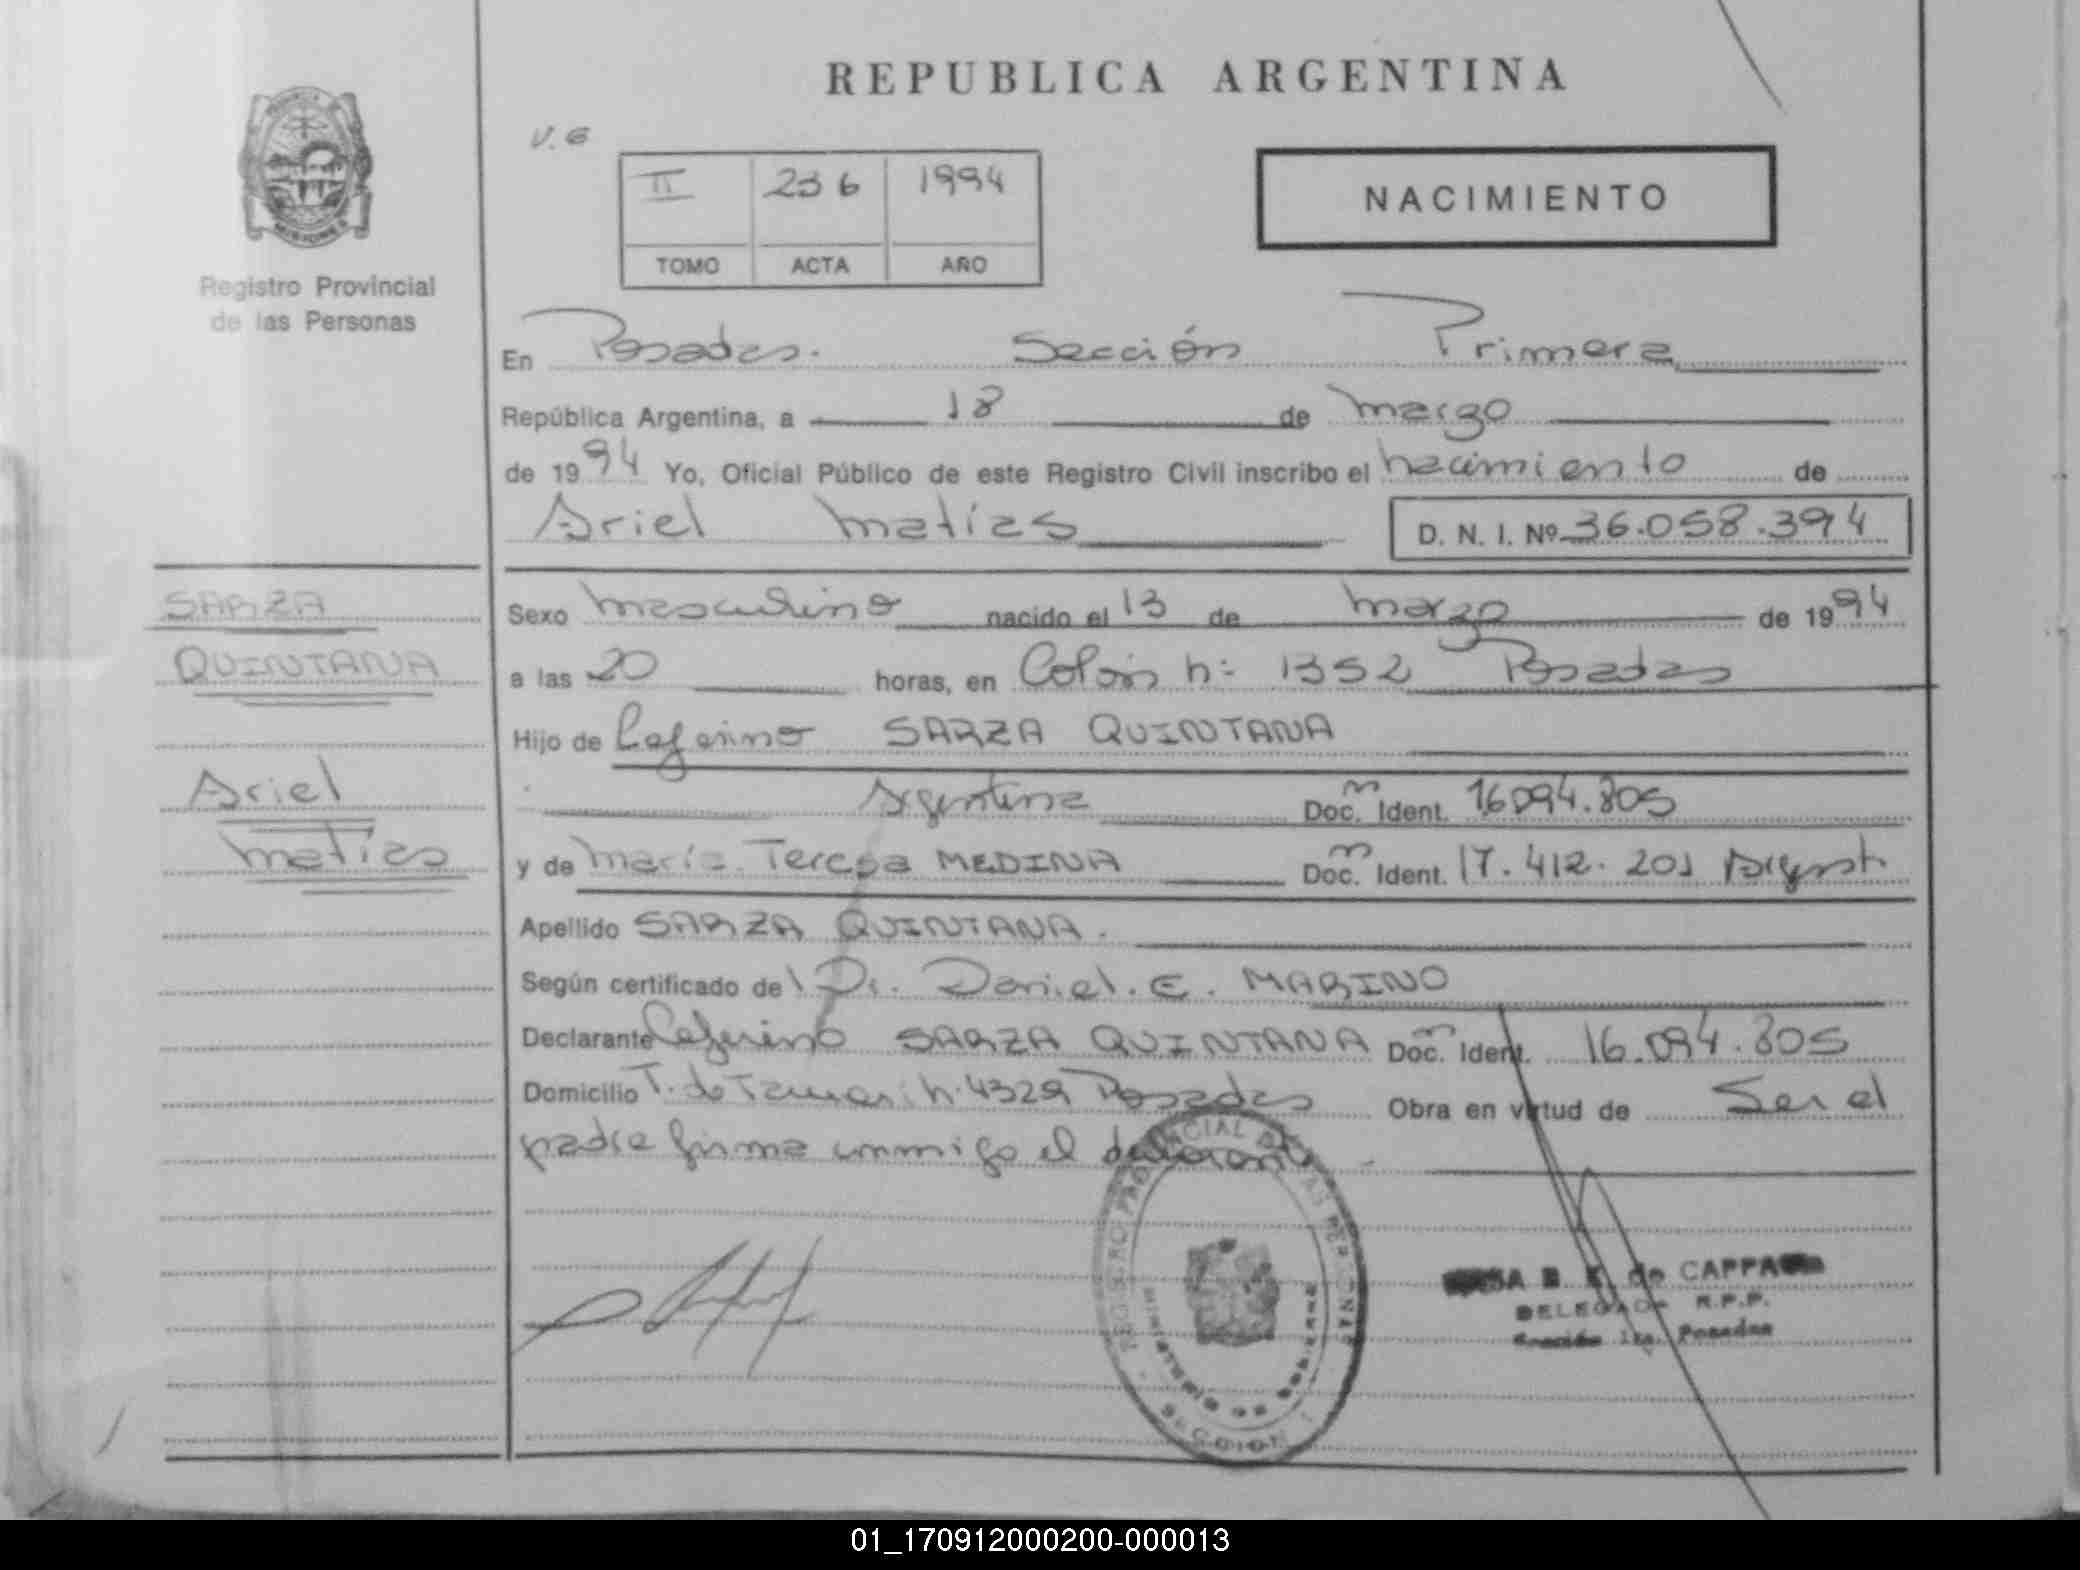 REPUBLICA ARGENTINA
V. G
II 236 1994
TOMO ACTA AÑO
NACIMIENTO
MISIONES
Registro Provincial
de las Personas
En Posadas. Sección Primera
República Argentina, a 18 de marzo
de 1994 Yo, Oficial Público de este Registro Civil inscribo el nacimiento de
Ariel Matías D. N. I. Nº 36.058.394
SARZA
QUINTANA
Ariel
Matías
Sexo masculino nacido el 13 de marzo de 1994
a las 20 horas, en Colón n: 1352 Posadas
Hijo de Ceferino SARZA QUINTANA
Argentina Doc. Ident. 16094.805
y de María Teresa MEDINA Doc. Ident. 17.412.201 Argent
Apellido SARZA QUINTANA.
Según certificado de Dr. Daniel. E. MARINO
Declarante Ceferino SARZA QUINTANA Doc. Ident. 16.094.805
Domicilio T. de n. 4329 Posadas Obra en virtud de Ser el
padre firma conmigo el declarante
REGISTRO PROVINCIAL DE LAS PERSONAS
MINISTERIO DE GOBIERNO
SECCION 1
B. de CAPPA
DELEGADA R.P.P.
Sección 1ra. Posadas
01_170912000200-000013